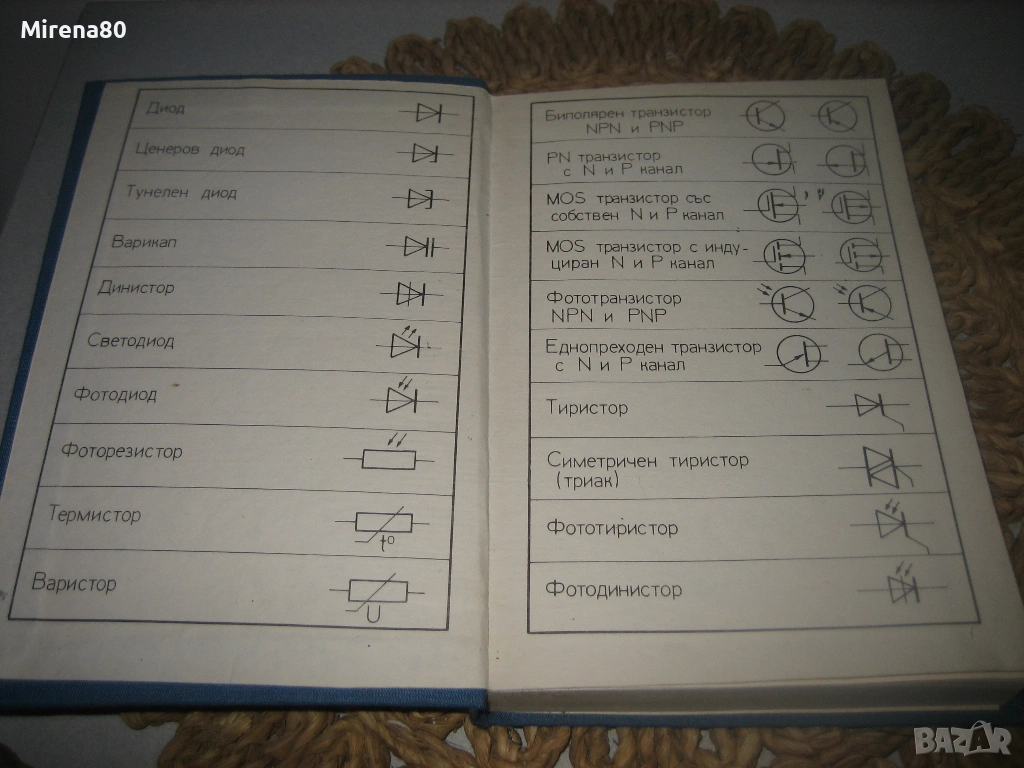 Mirena80
Диод
Ценеров диод
Тунелен диод
Варикап
Динистор
Светодиод
Фотодиод
Фоторезистор
Термистор
t°
Варистор
U
Биполярен транзистор
NPN и PNP
PN транзистор
с N и P канал
MOS транзистор със
собствен N и P канал
MOS транзистор с инду-
циран N и P канал
Фототранзистор
NPN и PNP
Еднопреходен транзистор
с N и P канал
Тиристор
Симетричен тиристор
(триак)
Фототиристор
Фотодинистор
BAZAR